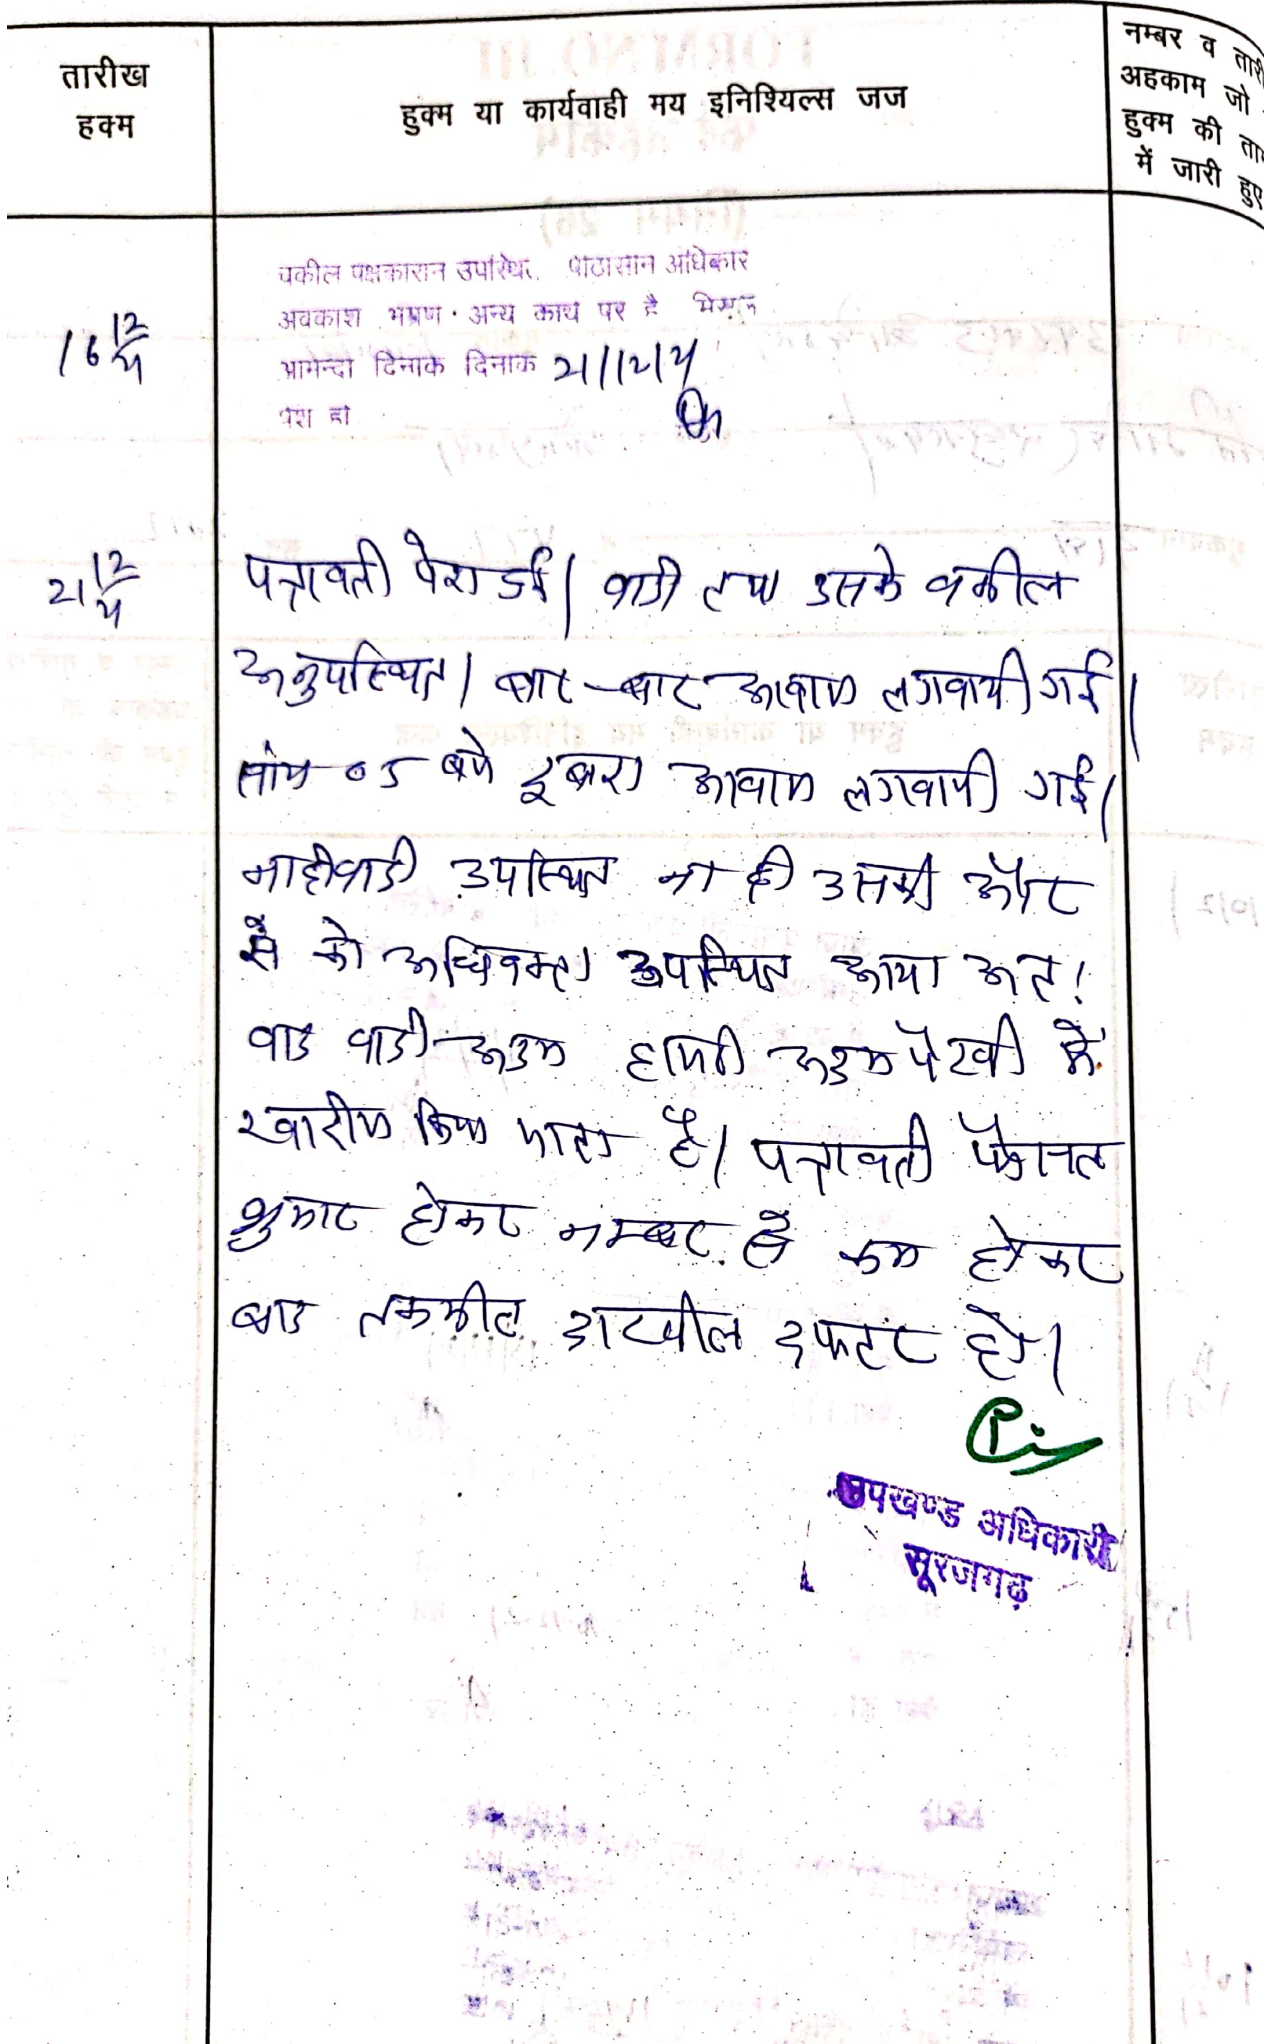 तारीख
हक्म
हुक्म या कार्यवाही मय इनिशियल्स जज
नम्बर व तारी
अहकाम जो
हुक्म की ता
में जारी हुए
16 12
वकील पक्षकारान उपस्थि. पीठासीन अधिकार
अवकाश भ्रमण . अन्य कार्य पर है
दिनाक दिनाक 21/12/
पेश हो
21 12
पत्रावली पेश हुई। वादी तथा उसके वकील
अनुपस्थित। बार-बार आवाज लगवायी गई।
सांय 05 बजे दुबारा आवाज लगवायी गई।
नाहीवादी उपस्थित ना ही उसकी और
से को अधिवक्ता उपस्थित आया अत!
वाद वादी अदम हाजरी अदम पैरवी में
खारीज किया जाता है। पत्रावली फैसल
शुमार होकर नम्बर से कम होकर
बाद तकमील दाखील दफ्तर हो।
उपखण्ड अधिकारी
सूरजगढ़